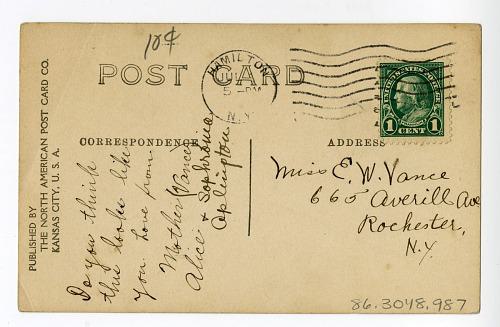 10¢
POST CARD
HAMILTON
JUL
5 - PM
N.Y.
UNITED STATES POSTAGE
1 CENT 1
CORRESPONDENCE
ADDRESS
PUBLISHED BY
THE NORTH AMERICAN POST CARD CO.
KANSAS CITY, U. S. A.
Do you think
this looks like
you. Love from
Mother (Vance)
Alice & Sophronia
Aplington
Miss E. W. Vance
665 Averill Ave
Rochester,
N.Y.
86.3048.987